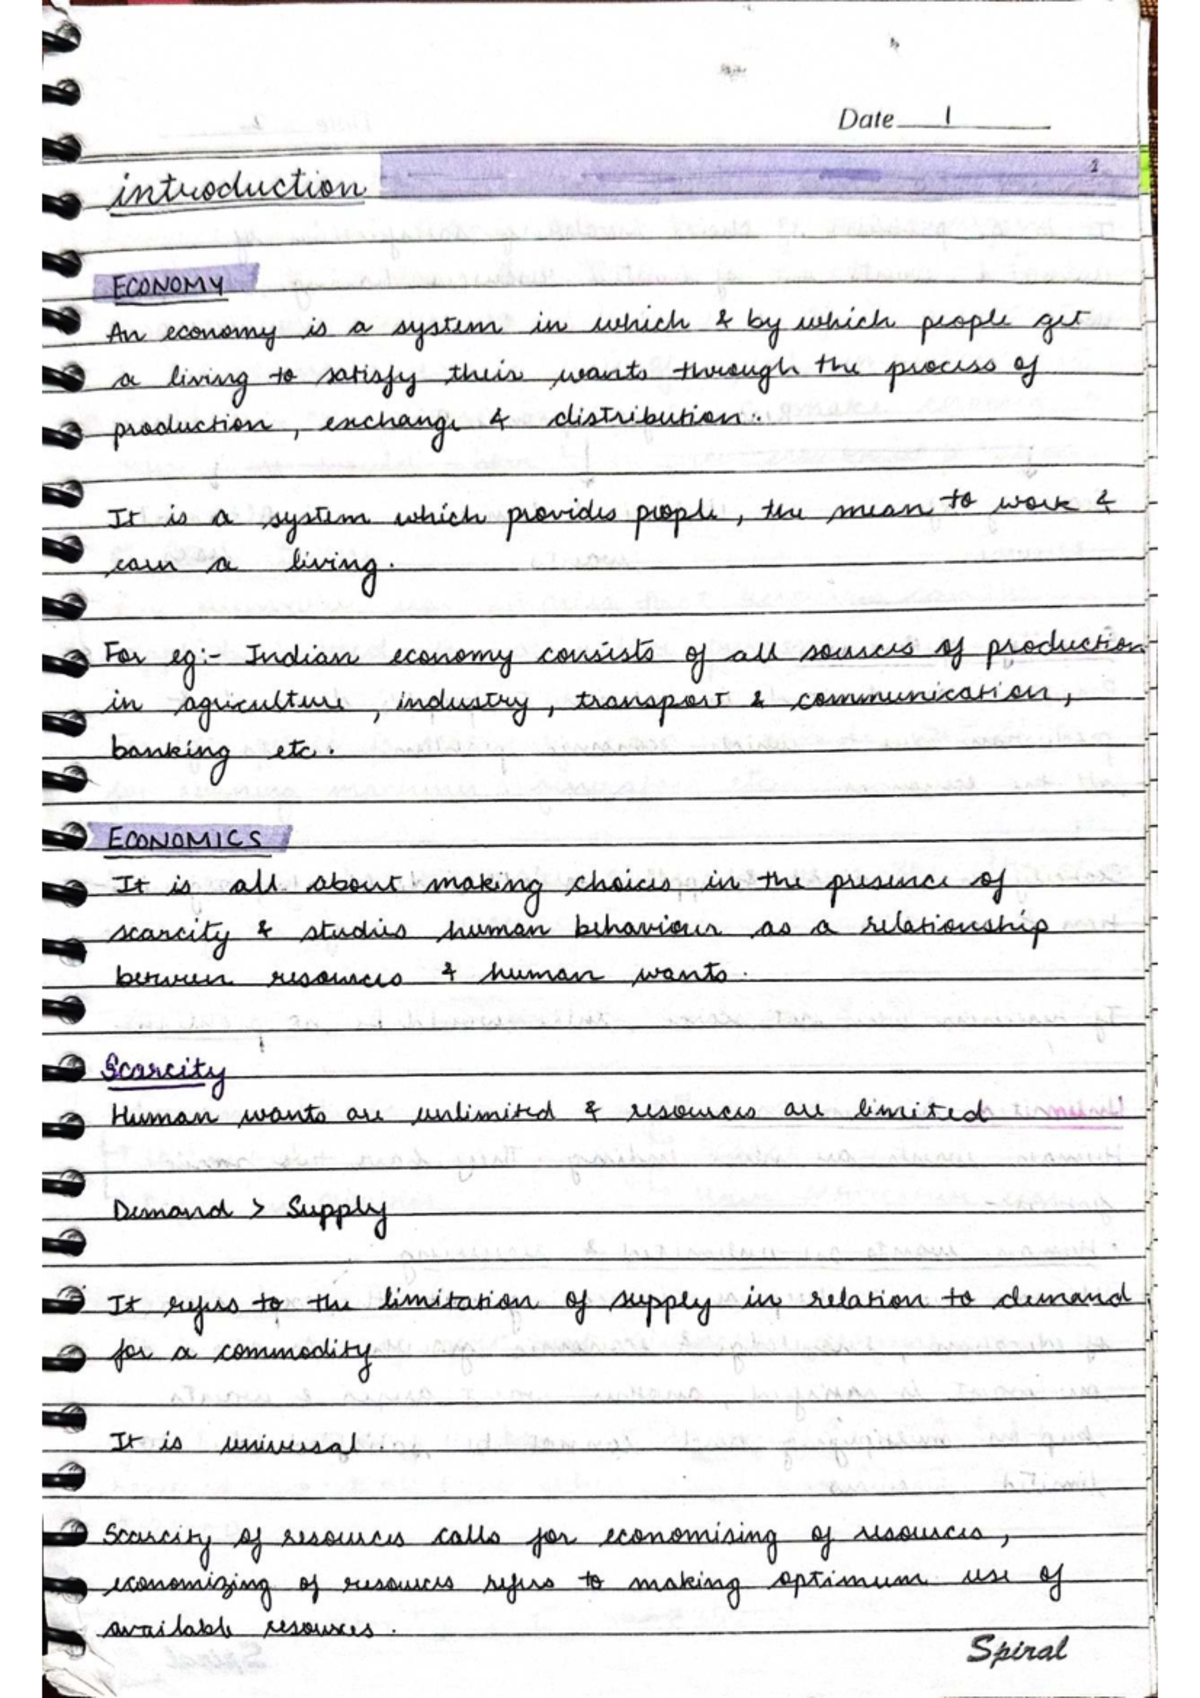 Date 1
1
introduction
ECONOMY
An economy is a system in which & by which people get
a living to satisfy their wants through the process of
production, exchange & distribution.
It is a system which provides people, the mean to work &
earn a living.
For eg:- Indian economy consists of all sources of production
in agriculture, industry, transport & communication,
banking etc.
ECONOMICS
It is all about making choices in the presence of
scarcity & studies human behaviour as a relationship
between resources & human wants.
Scarcity
Human wants are unlimited & resources are limited
Demand > Supply
It refers to the limitation of supply in relation to demand
for a commodity
It is universal.
Scarcity of resources calls for economising of resources,
economizing of resources refers to making optimum use of
available resources.
Spiral